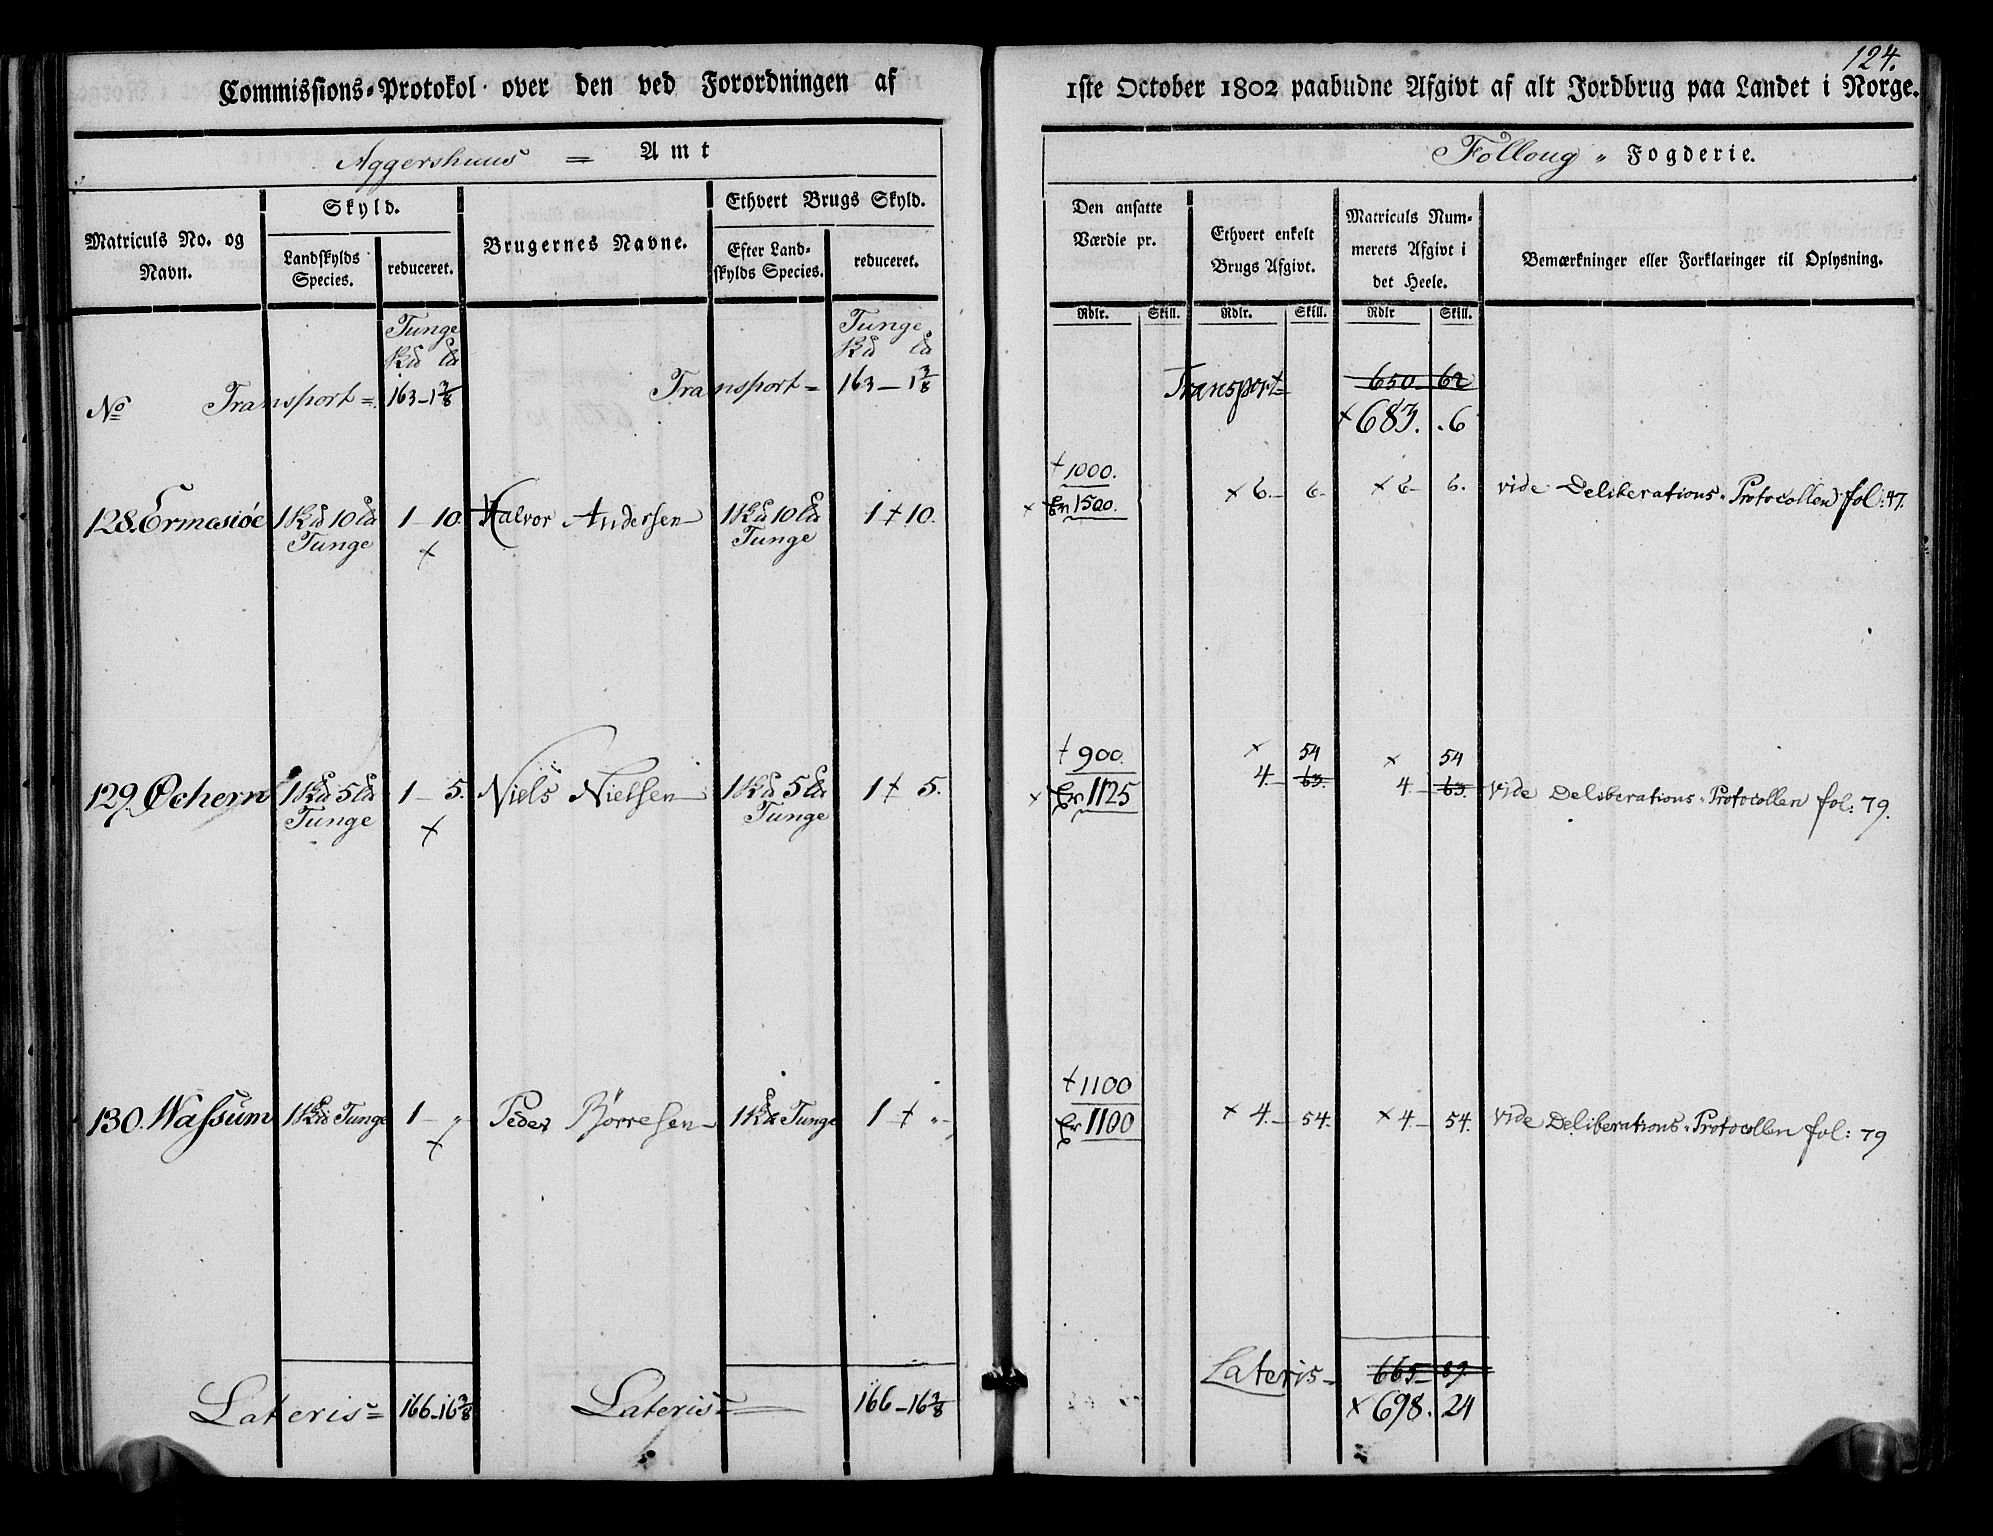 124.
Commissions-Protokol over den ved Forordningen af 1ste October 1802 paabudne Afgivt af alt Jordbrug paa Landet i Norge.
Aggershuus = Amt
Folloug " Fogderie.
Matriculs No. og Navn.
Skyld.
Landskylds Species.
reduceret.
Brugernes Navne.
Ethvert Brugs Skyld.
Efter Landskylds Species.
reduceret.
Den ansatte Værdie pr.
Ethvert enkelt Brugs Afgivt.
Matriculs Nummerets Afgivt i det Heele.
Bemærkninger eller Forklaringer til Oplysning.
Rdlr. Skill. Rdlr. Skill. Rdlr Skill.
Tunge Tunge
No Transport = 163 - 1 3/8 Transport = 163 - 1 3/8 Transport = 650 - 62
× 683. . 6
† 1000.
128. Ermesiöe 1 10 1 - 10. Halvor Andersen 1 10 1 † 10. × Er 1500. × 6. - 6. × 6 - 6. vide Deliberations-Protocollen fol: 47.
Tunge × Tunge
† 900. × 54 × 54
129. Ochern 1 5 1 - 5. Niels Nielsen 1 5 1 † 5. × Er 1125 4. - 63. 4. - 63. vide Deliberations-Protocollen fol: 79.
Tunge × Tunge
† 1100
130. Wassum 1 Tunge 1 - " Peder Börresen 1 Tunge 1 † " - Er 1100 × 4. - 54. × 4. - 54. vide Deliberations-Protocollen fol: 79
×
Lateris = 166 - 16 3/8 Lateris = 166 - 16 3/8 Lateris - 665 - 89.
× 698. 24